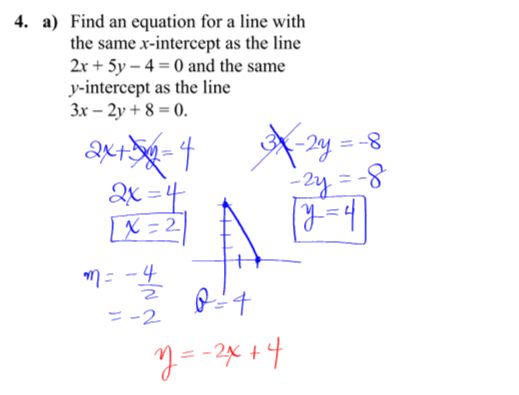 4. a) Find an equation for a line with
the same x-intercept as the line
2x + 5y – 4 = 0 and the same
y-intercept as the line
3x – 2y + 8 = 0.
2x+5y=4
3x-2y=-8
2x=4
-2y=-8
x=2
y=4
m=-4/2
=-2
b=4
y=-2x+4